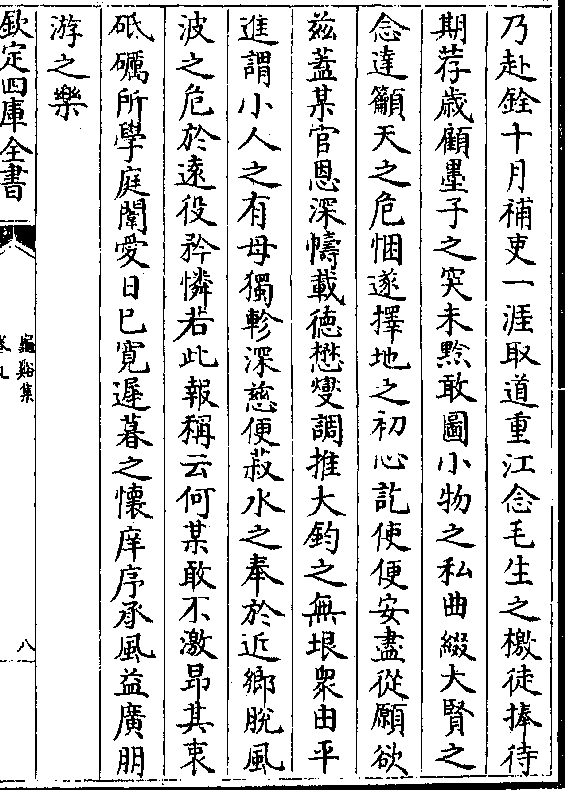 乃赴銓十月補吏一涯取道重江念毛生之檄徒捧待
期荐歳顧墨子之突未黔敢圖小物之私曲綴大賢之
念達籲天之危悃遂擇地之初心訖使便安盡從願欲
兹蓋某官恩深幬載徳懋燮調推大鈞之無垠衆由平
進謂小人之有母獨軫深慈便菽水之奉於近鄉脫風
波之危於遠役矜憐若此報稱云何某敢不激昂其衷
砥礪所學庭闈愛日已寛遲暮之懷庠序承風益廣朋
游之樂
欽定四庫全書
龜谿集
卷九
八